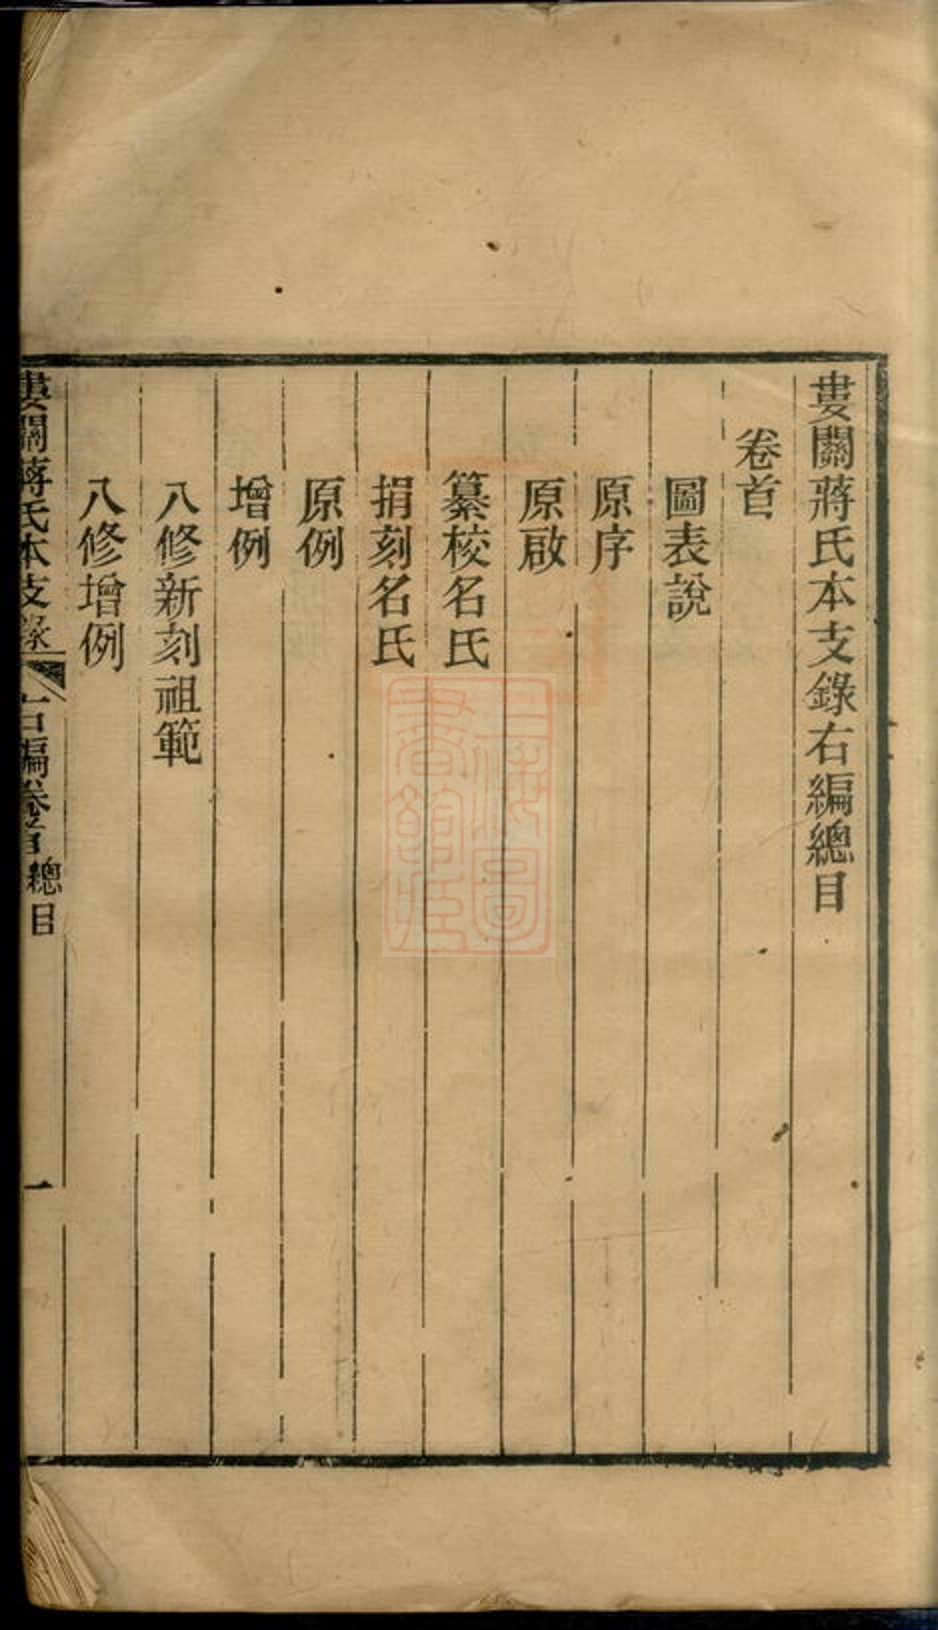 婁關蔣氏本支錄右編總目
卷首
圖表說
原序
原啟
纂校名氏
捐刻名氏
原例
增例
八修新刻祖範
八修增例
婁關蔣氏本支錄
右編卷首總目
一
上海圖
書館藏